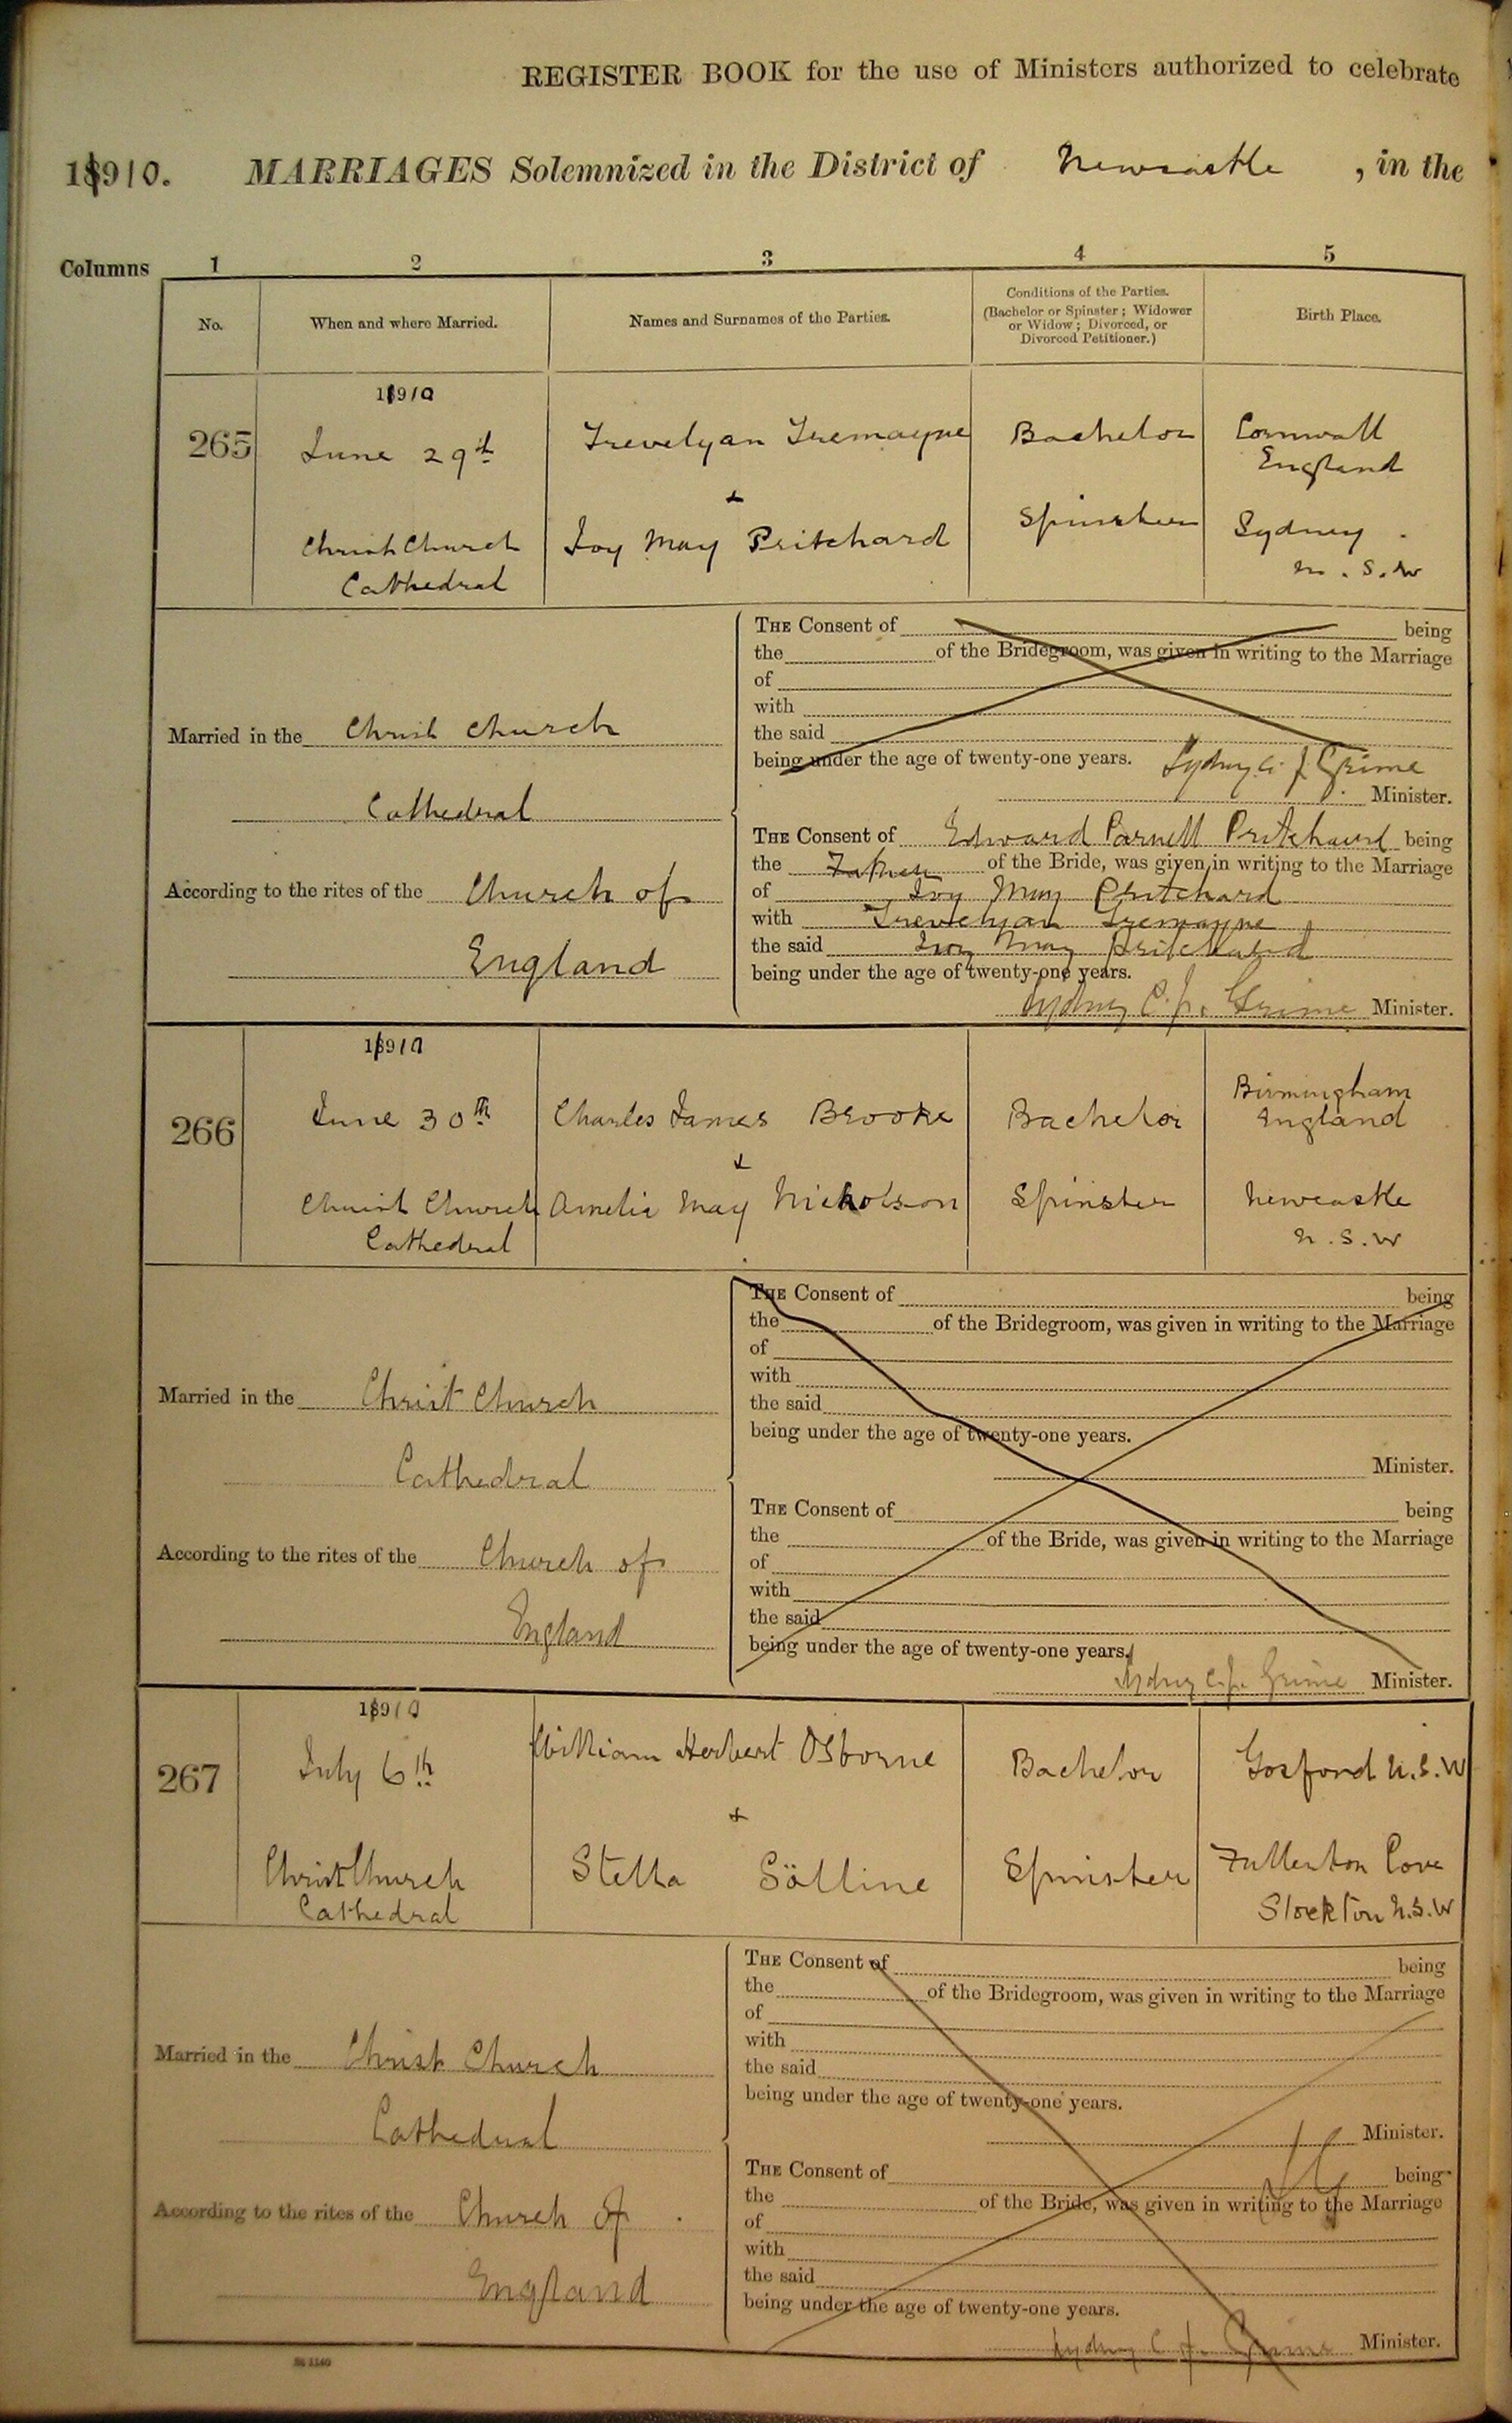 REGISTER BOOK for the use of Ministers authorized to celebrate
1910. MARRIAGES Solemnized in the District of Newcastle, in the
Columns 1 2 3 4 5
No. When and where Married. Names and Surnames of the Parties. Conditions of the Parties. (Bachelor or Spinster; Widower or Widow; Divorced, or Divorced Petitioner.) Birth Place.
1910
265 June 29th Trevelyan Tremayne Bachelor Cornwall
England
+
Christ Church Ivy May Pritchard Spinster Sydney
Cathedral N.S.W
THE Consent of being
the of the Bridegroom, was given in writing to the Marriage
of
with
the said
being under the age of twenty-one years.
Sydney C. J. Grime
Minister.
Married in the Christ Church
Cathedral
According to the rites of the Church of
England
THE Consent of Edward Parnell Pritchard being
the Father of the Bride, was given in writing to the Marriage
of Ivy May Pritchard
with Trevelyan Tremayne
the said Ivy May Pritchard
being under the age of twenty-one years.
Sydney C. J. Grime Minister.
1910
266 June 30th Charles James Brooke Bachelor Birmingham
England
+
Christ Church Amelia May Nicholson Spinster Newcastle
Cathedral N.S.W
THE Consent of being
the of the Bridegroom, was given in writing to the Marriage
of
with
the said
being under the age of twenty-one years.
Minister.
Married in the Christ Church
Cathedral
According to the rites of the Church of
England
THE Consent of being
the of the Bride, was given in writing to the Marriage
of
with
the said
being under the age of twenty-one years.
Sydney C. J. Grime Minister.
1910
267 July 6th William Herbert Osborne Bachelor Gosford N.S.W
+
Christ Church Stella Sölline Spinster Fullerton Cove
Cathedral Stockton N.S.W
THE Consent of being
the of the Bridegroom, was given in writing to the Marriage
of
with
the said
being under the age of twenty-one years.
Minister.
Married in the Christ Church
Cathedral
According to the rites of the Church of
England
THE Consent of being
the of the Bride, was given in writing to the Marriage
of
with
the said
being under the age of twenty-one years.
Sydney C. J. Grime Minister.